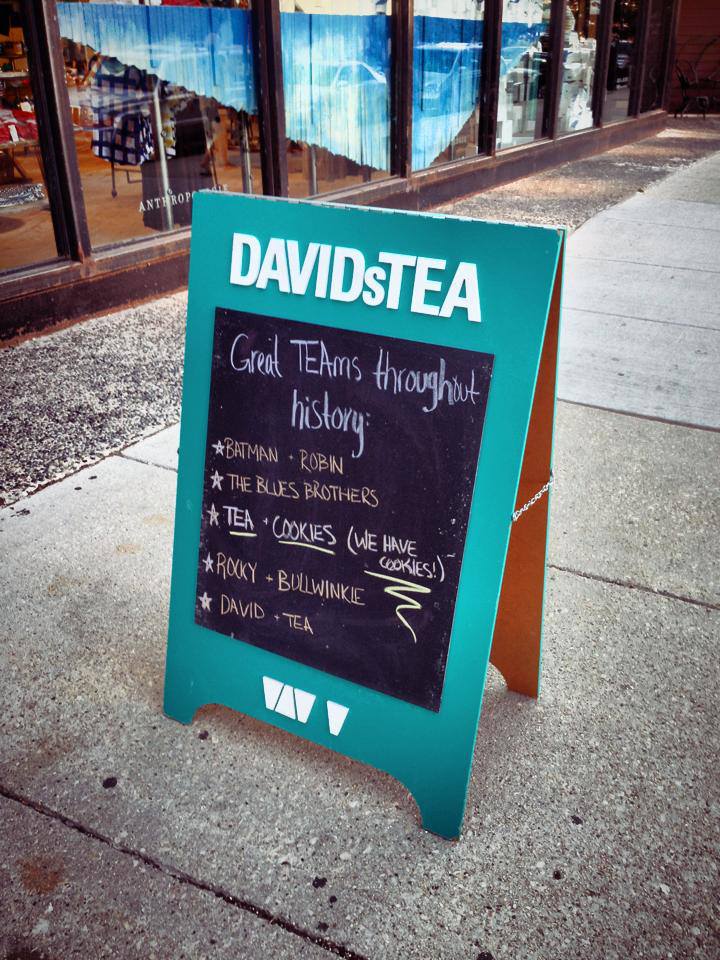 ANTHROPOLOGIE
DAVIDsTEA
Great TEAms throughout
history:
BATMAN + ROBIN
THE BLUES BROTHERS
TEA + COOKIES (WE HAVE
COOKIES!)
ROCKY + BULLWINKLE
DAVID + TEA